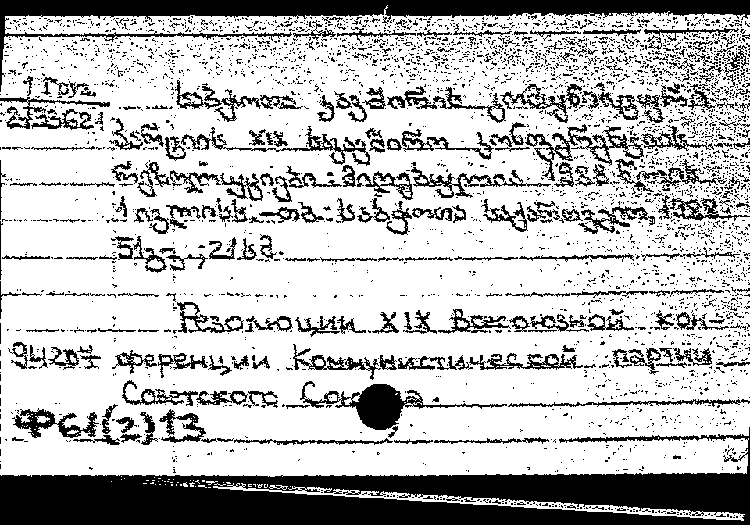 1 Груз.
2133621
საბჭოთა კავშირის კომუნისტური
პარტიის XIX საკავშირო კონფერენციის
რეზოლუციები : მიღებულია 1988 წლის
1 ივლისს. -თბ.: საბჭოთა საქართველო, 1988. -
51გვ. ; 21სმ.
Резолюции XIX Всесоюзной кон-
94207 ференции Коммунистической партии
Советского Союза.
Ф61(2)13